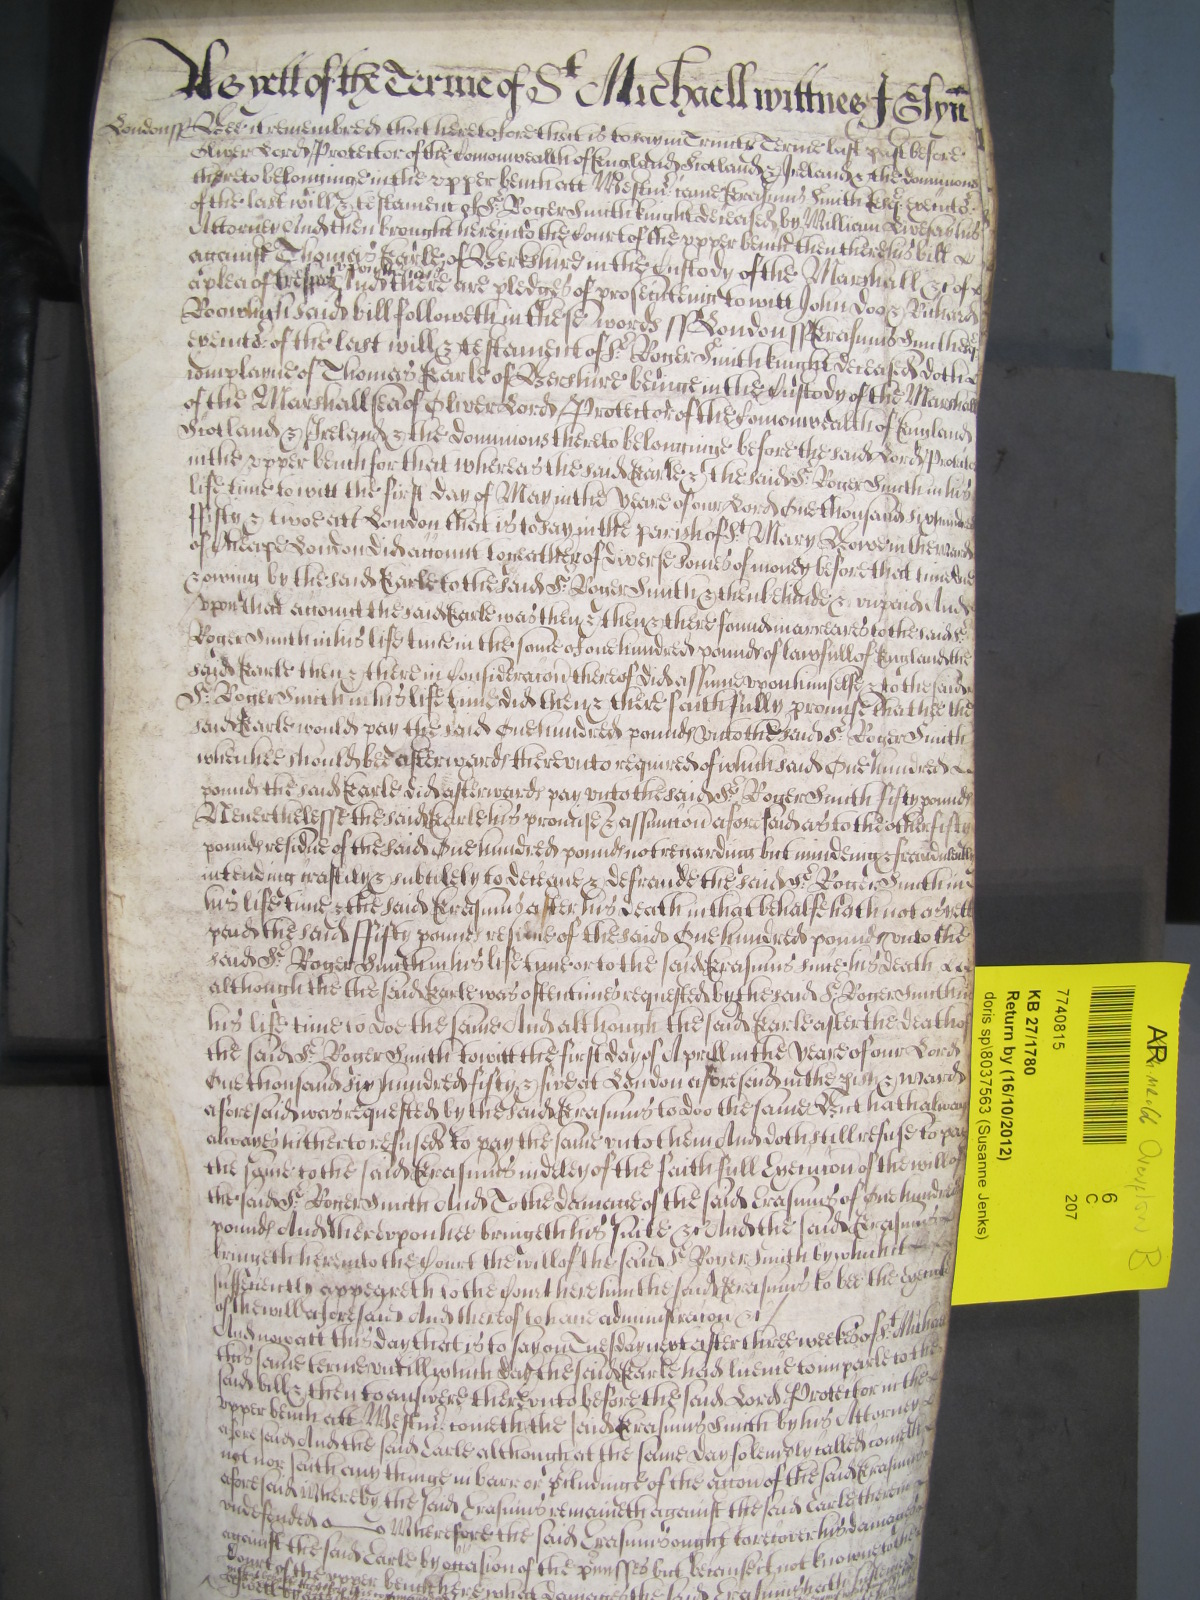 As yett of the Terme of St Michaell wittnes J Glyn
London ss Bee it remembred that heretofore that is to say in Trinity Terme last past before
Oliver Lord Protector of the Comonwealth of England Scotland & Ireland & the dominions
thereto belonginge in the vpper bench att Westmr came Erasmus Smith Esqr executor
of the last will & testament of Sr Roger Smith knight deceased by William his
Attorney And then brought here into the Court of the vpper bench then there his bill
against Thomas Earle of Berkshire in the Custody of the Marshall &c of
a plea of trespas vpon the case And there are pledges of prosecuteing to witt John Doo & Richard
Roo which said bill followeth in these words ss London ss Erasmus Smith Esqr
executor of the last will & testament of Sr Roger Smith knight deceased doth
complayne of Thomas Earle of Berkshire beinge in the Custody of the Marshall
of the Marshallsea of Oliver Lord Protector of the Comonwealth of England
Scotland & Ireland & the dominions thereto belonginge before the said Lord Protector
in the vpper bench for that whereas the said Earle & the said Sr Roger Smith in his
life time to witt the first day of May in the yeare of our Lord One thousand six hundred
ffifty & two att London that is to say in the parish of St Mary Bowe in the ward
of Cheape London did account togeather of diverse somes of money before that time due
& owing by the said Earle to the said Sr Roger Smith & then behinde & vnpaid And
vpon that account the said Earle was then & then & there found in arreares to the said Sr
Roger Smith in his life time in the some of one hundred pounds of lawfull of England the
said Earle then & there in Consideracon thereof did assume vpon himselfe & to the said
Sr Roger Smith in his life time did then & there faithfully promise that hee the
said Earle would pay the said One hundred pounds vnto the said Sr Roger Smith
when hee should bee afterwards therevnto required of which said One hundred
pounds the said Earle did afterwards pay vnto the said Sr Roger Smith fifty pounds
Neverthelesse the said Earle his promise & assumcon aforesaid as to the other fifty
pounds residue of the said One hundred pounds not regarding but mindeing & fraudulently
intending craftily & subtilely to deceive & defraude the said Sr Roger Smith in
his life time & the said Erasmus after his death in that behalfe hath not as yett
paid the said ffifty pounds residue of the said One hundred pounds vnto the
said Sr Roger Smith in his life time or to the said Erasmus since his death
although the the said Earle was oftentimes requested by the said Sr Roger Smith in
his life time to doe the same And although the said Earle after the death of
the said Sr Roger Smith to witt the first day of Aprill in the yeare of our Lord
One thousand six hundred fifty & five att London aforesaid in the pish & ward
aforesaid was requested by the said Erasmus to doo the same But hath alwayes
alwayes hitherto refused to pay the same vnto them And doth still refuse to pay
the same to the said Erasmus in deley of the faithfull Execucon of the will of
the said Sr Roger Smith And To the damage of the said Erasmus of One hundred
pounds And therevpon hee bringeth his suite &c And the said Erasmus
bringeth here into the Court the will of the said Sr Roger Smith by which it
sufficently appeareth to the Court here him the said Erasmus to bee the Executor
of the will aforesaid And thereof to have administracon &c
And now att this day that is to say on Tuesday next after three weekes of St Michaell
this same terme vntill which day the said Earle had licence to imparle to the
said bill & then to answere therevnto before the said Lord Protector in the
vpper bench att Westmr cometh the said Erasmus Smith by his Attorney
aforesaid And the said Earle although at the same day solemnly called cometh
not nor saith any thinge in barr or pcludinge of the accon of the said Erasmus
aforesaid whereby the said Erasmus remaineth against the said Earle therein
vndefended Wherefore the said Erasmus ought to recover his damages
against the said Earle by occasion of the pmisses but because it is not knowne to the
Court of the vpper bench here what damages the said Erasmus hath
ARnold Overflow B
6
C
207
7740815
KB 27/1780
Return by (16/10/2012)
doris sp\8037563 (Susanne Jenks)